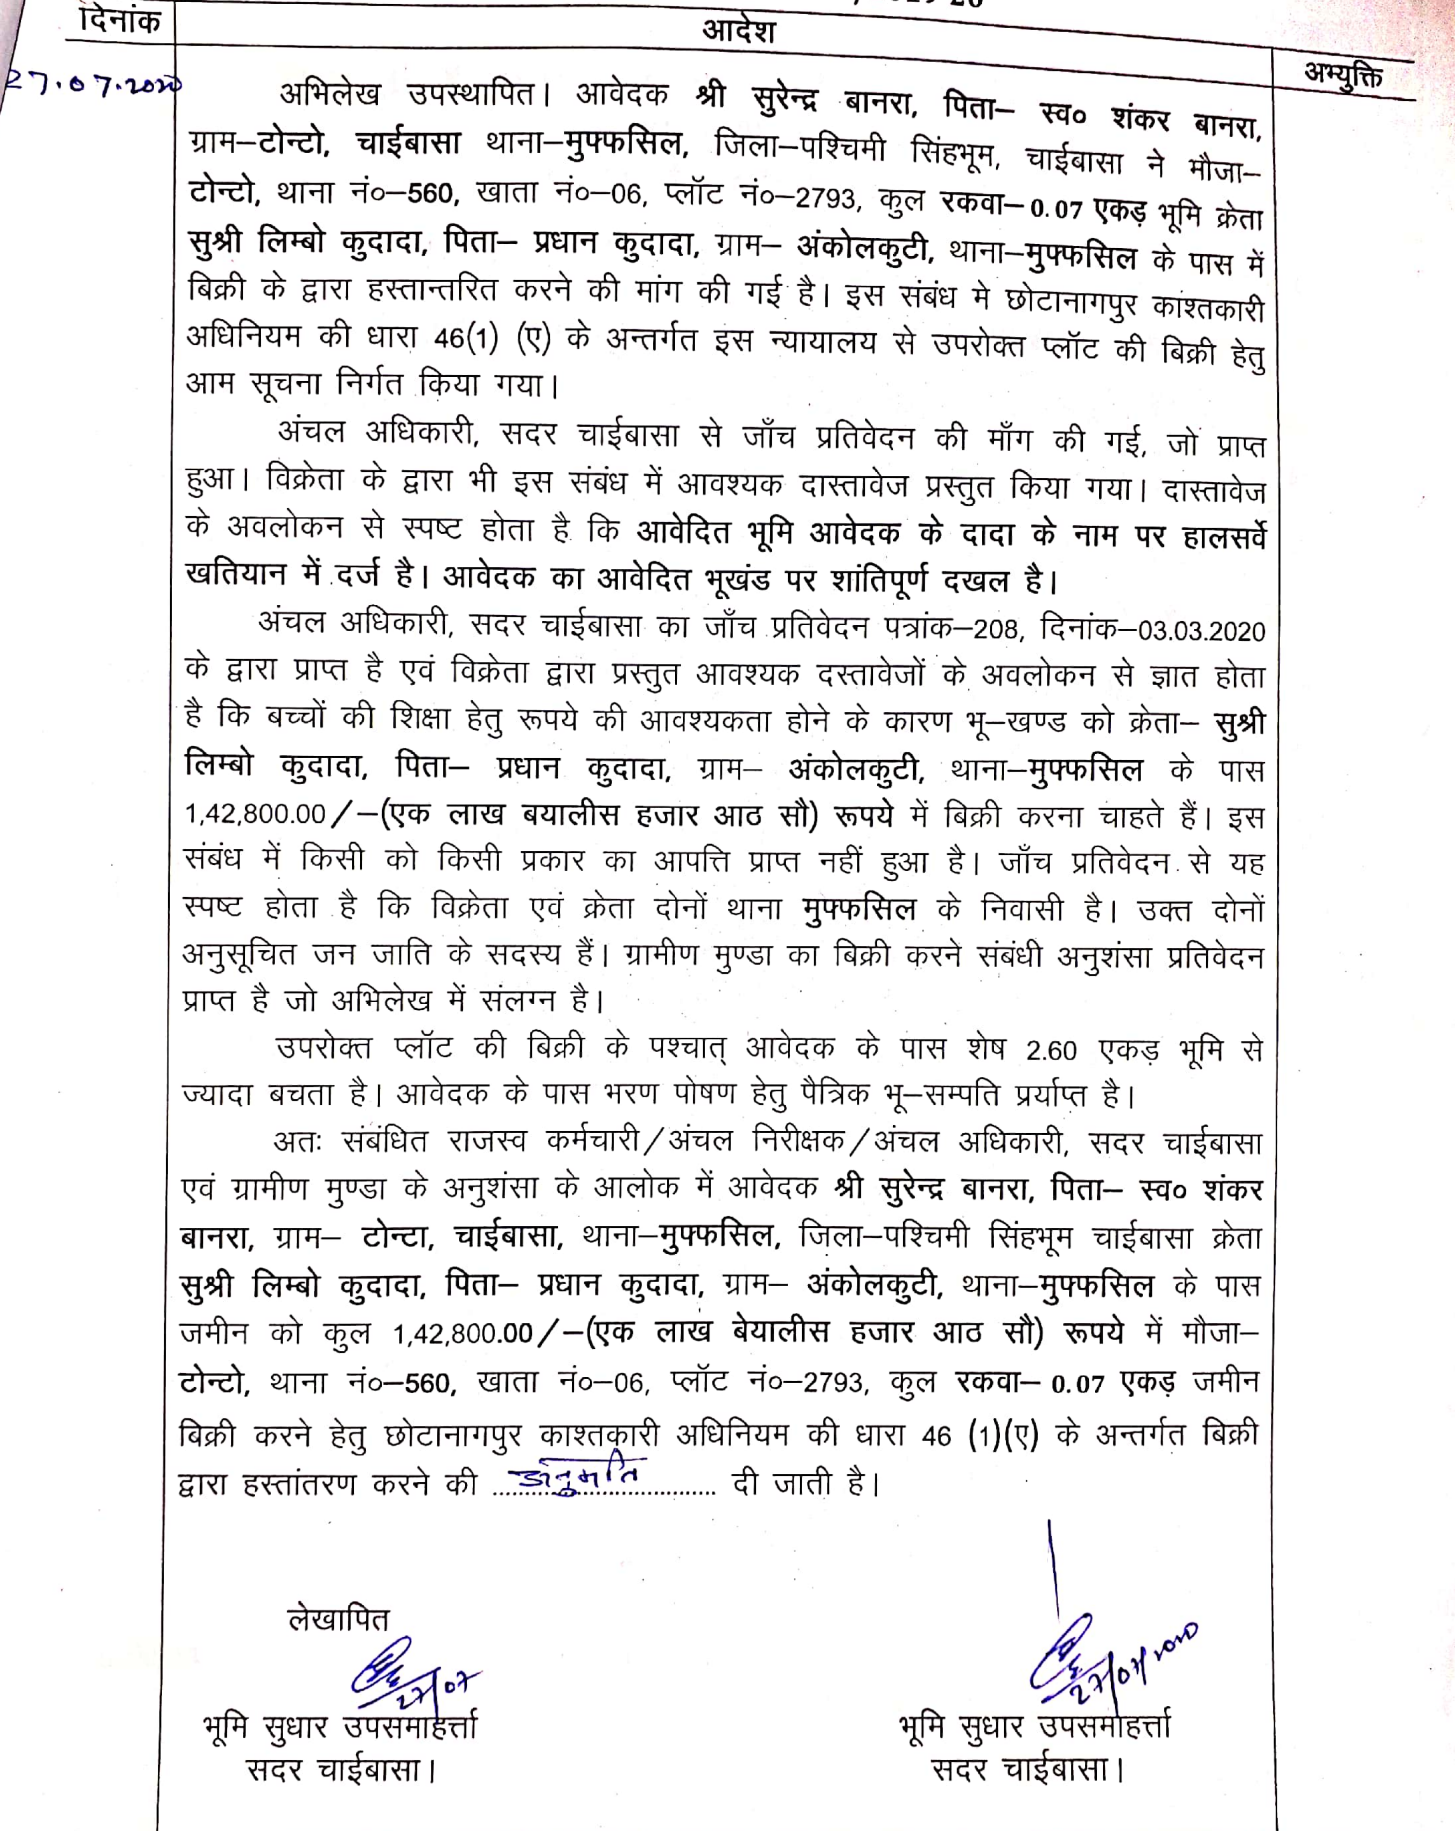 दिनांक
आदेश
अभ्युक्ति
27.07.2020
अभिलेख उपस्थापित। आवेदक श्री सुरेन्द्र बानरा, पिता– स्व० शंकर बानरा,
ग्राम–टोन्टो, चाईबासा थाना–मुफ्फसिल, जिला–पश्चिमी सिंहभूम, चाईबासा ने मौजा–
टोन्टो, थाना नं०–560, खाता नं०–06, प्लॉट नं०–2793, कुल रकवा– 0.07 एकड़ भूमि क्रेता
सुश्री लिम्बो कुदादा, पिता– प्रधान कुदादा, ग्राम– अंकोलकुटी, थाना–मुफ्फसिल के पास में
बिक्री के द्वारा हस्तान्तरित करने की मांग की गई है। इस संबंध मे छोटानागपुर कांश्तकारी
अधिनियम की धारा 46(1) (ए) के अन्तर्गत इस न्यायालय से उपरोक्त प्लॉट की बिक्री हेतु
आम सूचना निर्गत किया गया।
अंचल अधिकारी, सदर चाईबासा से जाँच प्रतिवेदन की माँग की गई, जो प्राप्त
हुआ। विक्रेता के द्वारा भी इस संबंध में आवश्यक दास्तावेज प्रस्तुत किया गया। दास्तावेज
के अवलोकन से स्पष्ट होता है कि आवेदित भूमि आवेदक के दादा के नाम पर हालसर्वे
खतियान में दर्ज है। आवेदक का आवेदित भूखंड पर शांतिपूर्ण दखल है।
अंचल अधिकारी, सदर चाईबासा का जाँच प्रतिवेदन पत्रांक–208, दिनांक–03.03.2020
के द्वारा प्राप्त है एवं विक्रेता द्वारा प्रस्तुत आवश्यक दस्तावेजों के अवलोकन से ज्ञात होता
है कि बच्चों की शिक्षा हेतु रूपये की आवश्यकता होने के कारण भू–खण्ड को क्रेता– सुश्री
लिम्बो कुदादा, पिता– प्रधान कुदादा, ग्राम– अंकोलकुटी, थाना–मुफ्फसिल के पास
1,42,800.00/–(एक लाख बयालीस हजार आठ सौ) रूपये में बिक्री करना चाहते हैं। इस
संबंध में किसी को किसी प्रकार का आपत्ति प्राप्त नहीं हुआ है। जाँच प्रतिवेदन से यह
स्पष्ट होता है कि विक्रेता एवं क्रेता दोनों थाना मुफ्फसिल के निवासी है। उक्त दोनों
अनुसूचित जन जाति के सदस्य हैं। ग्रामीण मुण्डा का बिक्री करने संबंधी अनुशंसा प्रतिवेदन
प्राप्त है जो अभिलेख में संलग्न है।
उपरोक्त प्लॉट की बिक्री के पश्चात् आवेदक के पास शेष 2.60 एकड़ भूमि से
ज्यादा बचता है। आवेदक के पास भरण पोषण हेतु पैत्रिक भू–सम्पति प्रर्याप्त है।
अतः संबंधित राजस्व कर्मचारी/अंचल निरीक्षक/अंचल अधिकारी, सदर चाईबासा
एवं ग्रामीण मुण्डा के अनुशंसा के आलोक में आवेदक श्री सुरेन्द्र बानरा, पिता– स्व० शंकर
बानरा, ग्राम– टोन्टा, चाईबासा, थाना–मुफ्फसिल, जिला–पश्चिमी सिंहभूम चाईबासा क्रेता
सुश्री लिम्बो कुदादा, पिता– प्रधान कुदादा, ग्राम– अंकोलकुटी, थाना–मुफ्फसिल के पास
जमीन को कुल 1,42,800.00/–(एक लाख बेयालीस हजार आठ सौ) रूपये में मौजा–
टोन्टो, थाना नं०–560, खाता नं०–06, प्लॉट नं०–2793, कुल रकवा– 0.07 एकड़ जमीन
बिक्री करने हेतु छोटानागपुर काश्तकारी अधिनियम की धारा 46 (1)(ए) के अन्तर्गत बिक्री
द्वारा हस्तांतरण करने की ....अनुमति.... दी जाती है।
लेखापित
27/07
27/07/2020
भूमि सुधार उपसमाहर्त्ता
भूमि सुधार उपसमाहर्त्ता
सदर चाईबासा।
सदर चाईबासा।